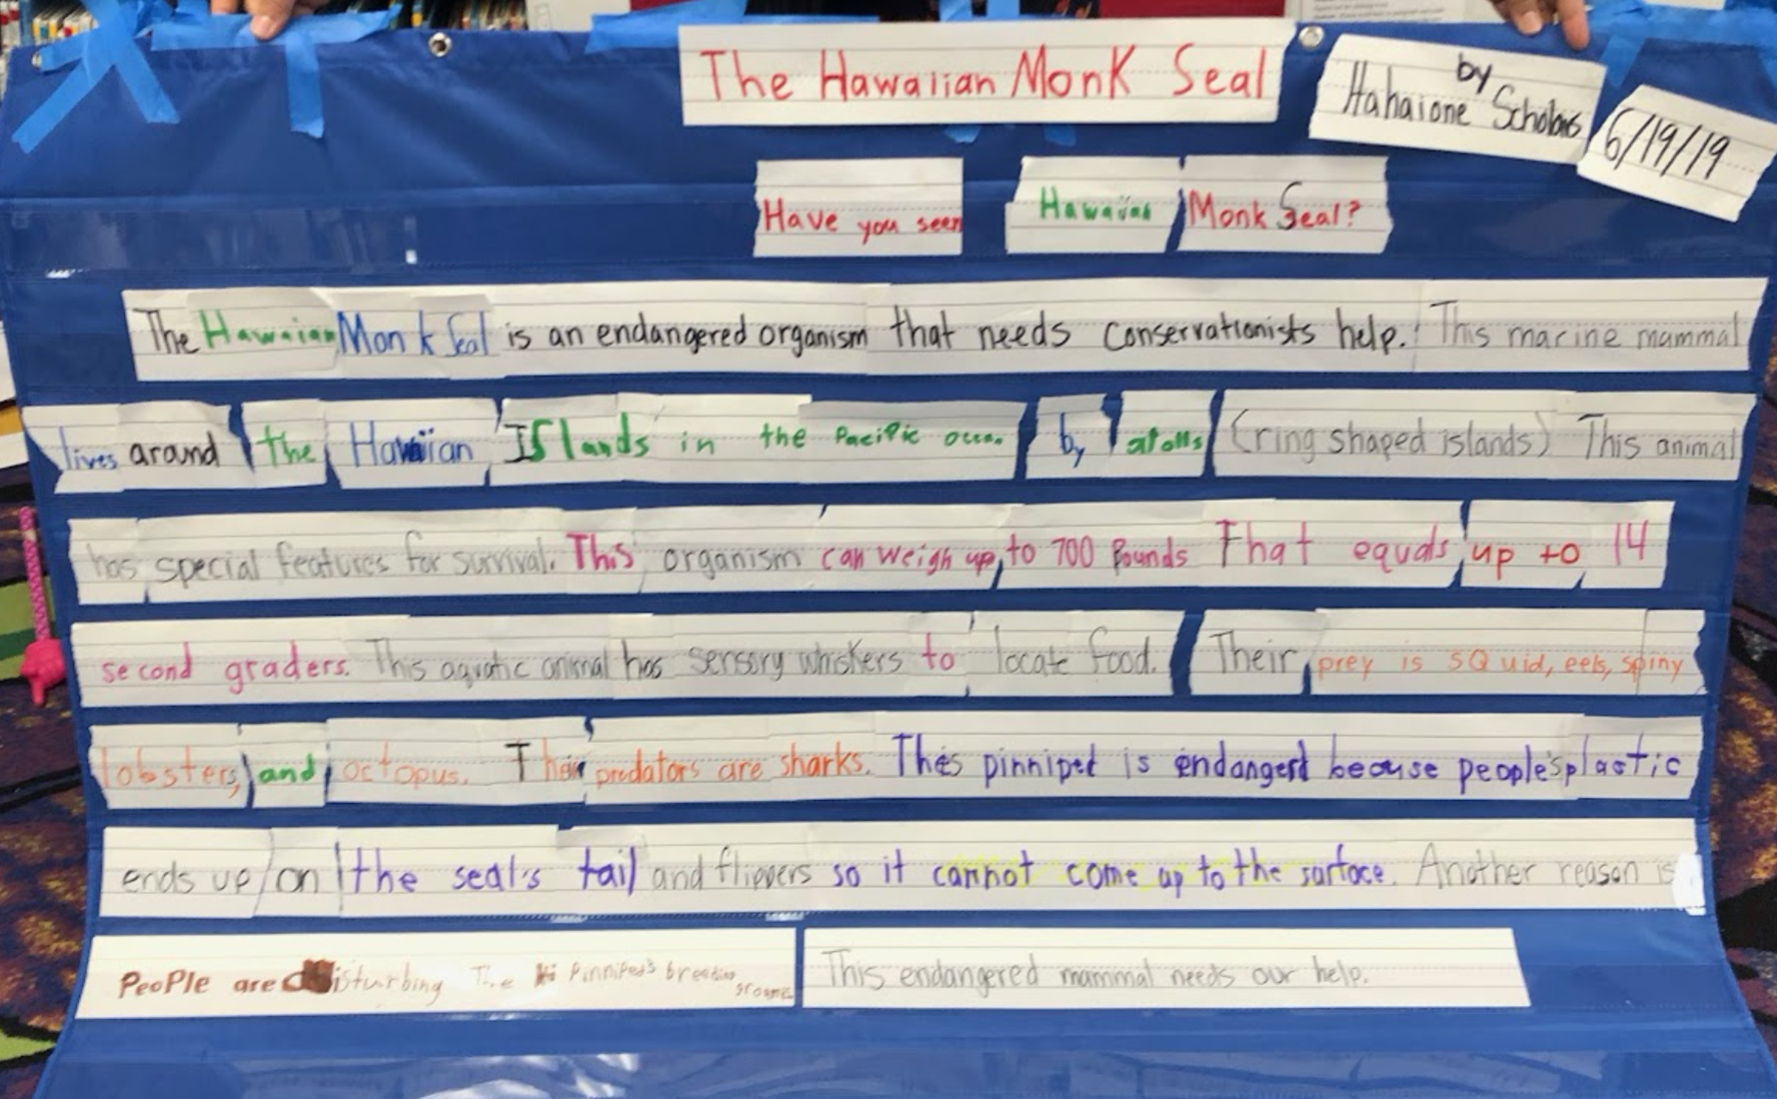 The Hawaiian Monk Seal
by
Hahaione Scholars
6/19/19
Have you seen Hawaiian Monk Seal?
The Hawaiian Monk Seal is an endangered organism that needs conservationists help. This marine mammal
lives around the Hawaiian Islands in the Pacific ocean by atolls (ring shaped islands) This animal
has special features for survival. This organism can weigh up to 700 Pounds That equals up to 14
second graders. This aquatic animal has sensory whiskers to locate food. Their prey is sQuid, eels, spiny
lobsters, and octopus. Their predators are sharks. This pinniped is endangerd because people's plastic
ends up on the seal's tail and flippers so it cannot come up to the surface. Another reason is
PeoPle are disturbing The Pinniped's breeding grounds This endangered mammal needs our help.